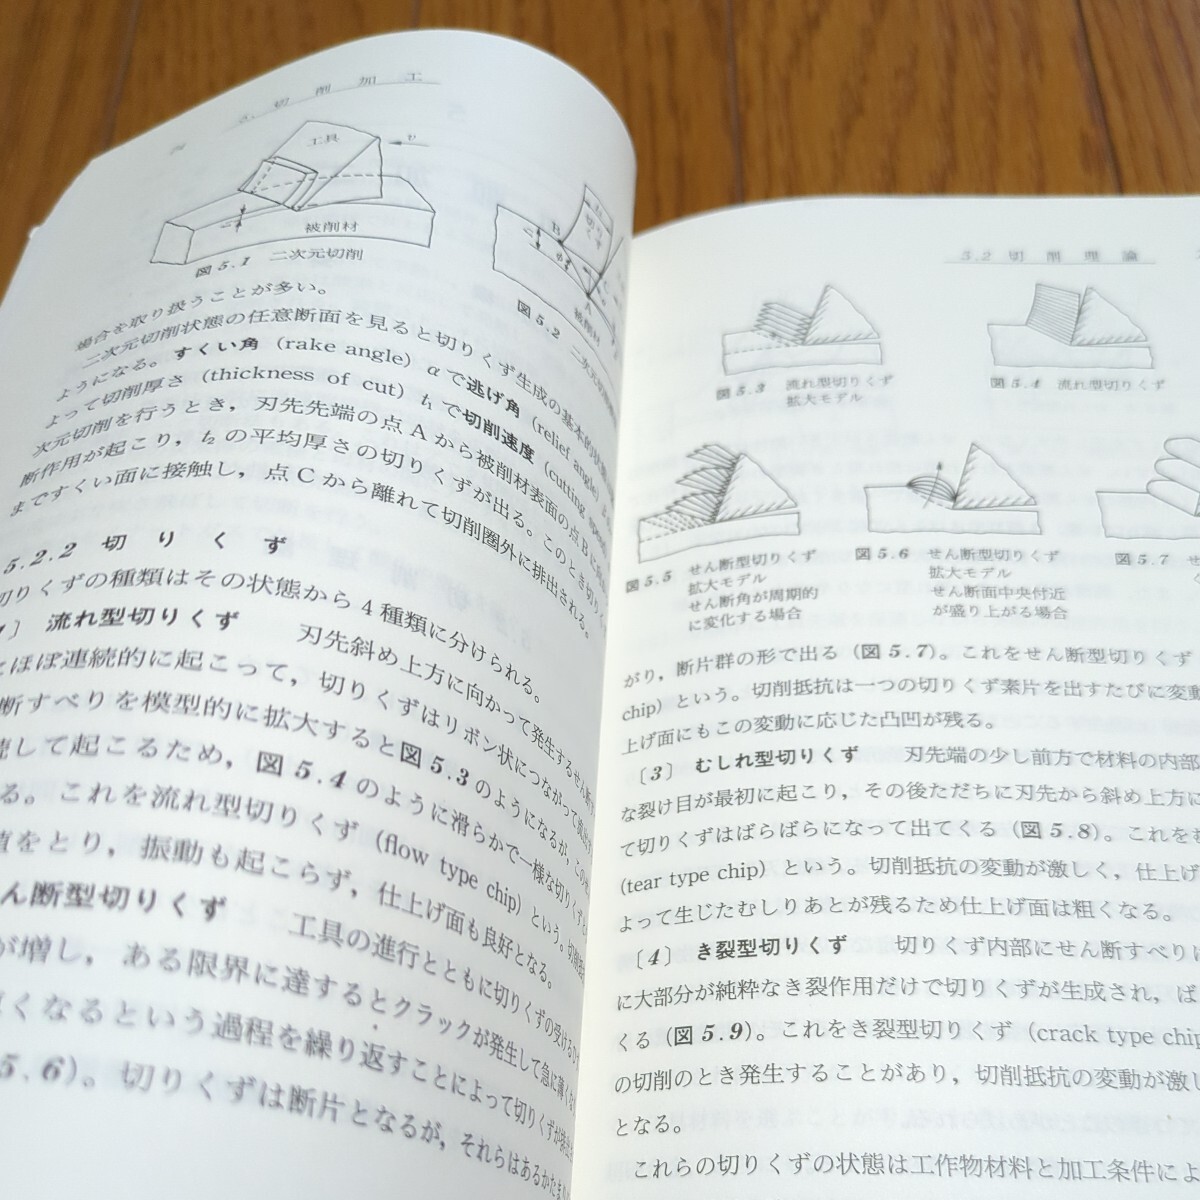 5. 切削加工
工具
v
被削材
図5.1 二次元切削
切りくず
B
A
C
被削材
図5.2 二次元切削
場合を取り扱うことが多い。
二次元切削状態の任意断面を見ると切りくず生成の基本的状態
ようになる。すくい角 (rake angle) αで逃げ角 (relief angle)
よって切削厚さ (thickness of cut) t₁で切削速度 (cutting
次元切削を行うとき，刃先先端の点Aから被削材表面の点Bに
断作用が起こり，t₂の平均厚さの切りくずが出る。このとき切り
まですくい面に接触し，点Cから離れて切削圏外に排出される。
5.2.2 切りくず
切りくずの種類はその状態から4種類に分けられる。
〕 流れ型切りくず 刃先斜め上方に向かって発生するせん断す
とほぼ連続的に起こって，切りくずはリボン状につながって
断すべりを模型的に拡大すると図5.3のようになるが，この
続して起こるため，図5.4のように滑らかで一様な切りくず
る。これを流れ型切りくず (flow type chip) という。切削
値をとり，振動も起こらず，仕上げ面も良好となる。
ん断型切りくず 工具の進行とともに切りくずの受ける
が増し，ある限界に達するとクラックが発生して急に薄く
くなるという過程を繰り返すことによって切りくずが
5.6)。切りくずは断片となるが，それらはあるかたま
5.2 切削理論
図5.3 流れ型切りくず
拡大モデル
図5.4 流れ型切りくず
図5.5 せん断型切りくず
拡大モデル
せん断角が周期的
に変化する場合
図5.6 せん断型切りくず
拡大モデル
せん断面中央付近
が盛り上がる場合
図5.7 せ
く
がり，断片群の形で出る (図5.7)。これをせん断型切りくず
chip) という。切削抵抗は一つの切りくず素片を出すたびに変動
上げ面にもこの変動に応じた凸凹が残る。
〔3〕 むしれ型切りくず 刃先端の少し前方で材料の内部
な裂け目が最初に起こり，その後ただちに刃先から斜め上方に
て切りくずはばらばらになって出てくる (図5.8)。これをむ
(tear type chip) という。切削抵抗の変動が激しく，仕上げ
よって生じたむしりあとが残るため仕上げ面は粗くなる。
〔4〕 き裂型切りくず 切りくず内部にせん断すべりは
に大部分が純粋なき裂作用だけで切りくずが生成され，ば
くる (図5.9)。これをき裂型切りくず (crack type chip
の切削のとき発生することがあり，切削抵抗の変動が激し
となる。
これらの切りくずの状態は工作物材料と加工条件によ